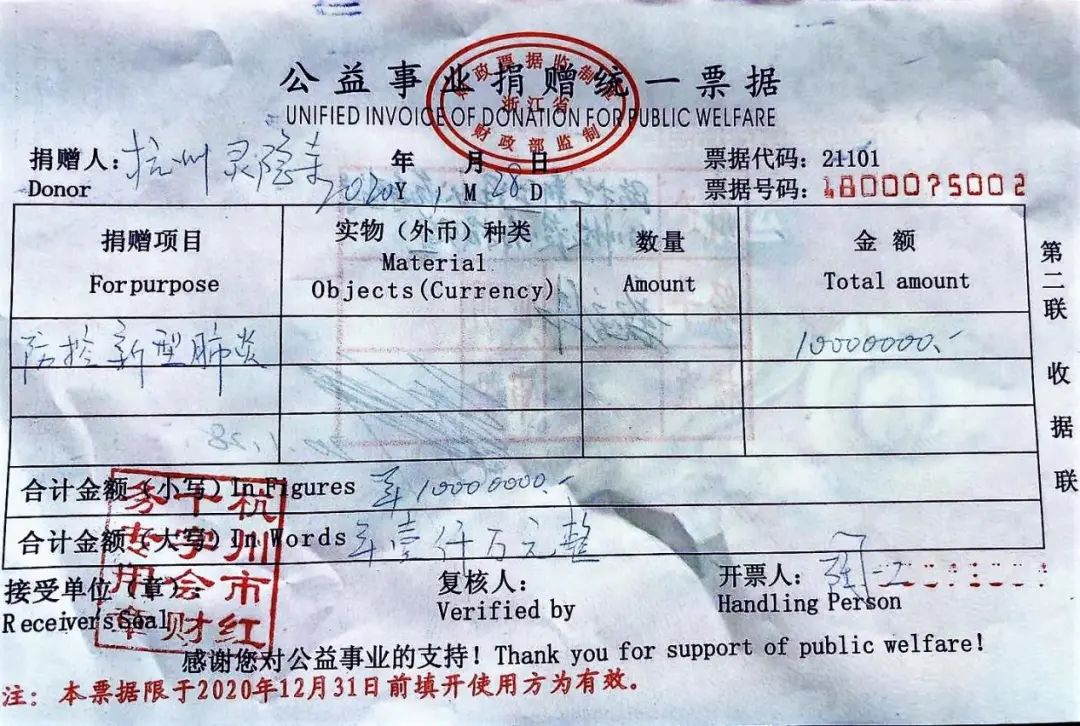 公益事业捐赠统一票据
UNIFIED INVOICE OF DONATION FOR PUBLIC WELFARE
财政票据监制章
浙江省
财政部监制
捐赠人: 杭州灵隐寺 年 月 日 票据代码: 21101
Donor 2020 Y 1 M 28 D 票据号码: 1800075002
捐赠项目 实物（外币）种类 数量 金额
For purpose Material Objects(Currency) Amount Total amount
防控新型肺炎 10000000.-
合计金额（小写）In Figures 10000000.-
合计金额（大写）In Words 壹仟万元整
接受单位（章）: 复核人: 开票人:
Receiver's Seal Verified by Handling Person
杭州市红十字会财务专用章
感谢您对公益事业的支持！Thank you for support of public welfare!
注: 本票据限于2020年12月31日前填开使用方为有效。
第二联 收据联